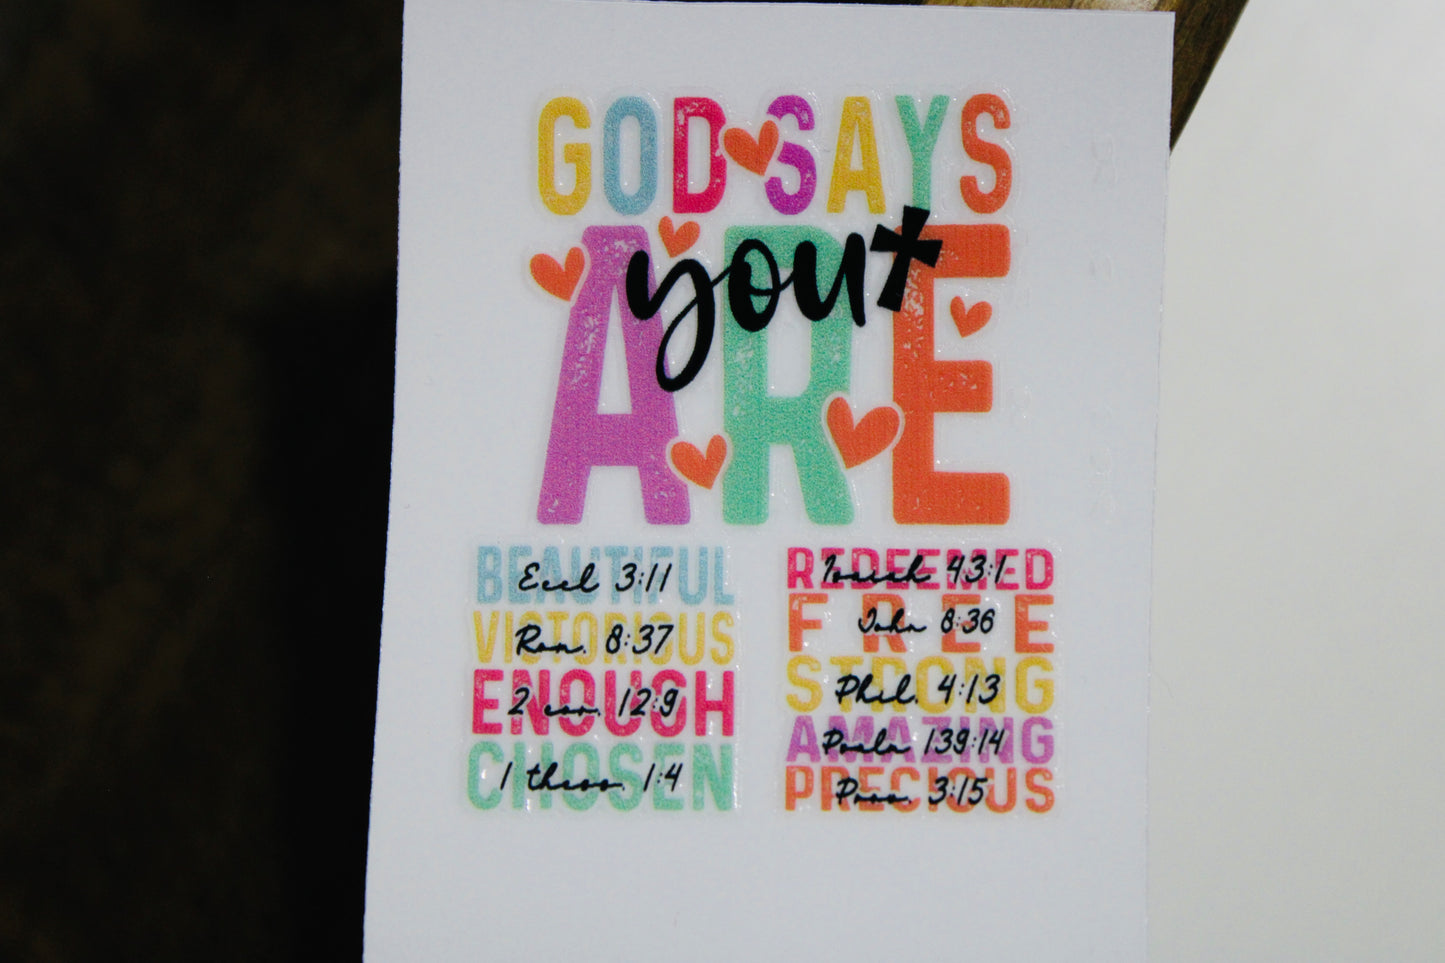 GOD SAYS
you
ARE
BEAUTIFUL
Eccl 3:11
VICTORIOUS
Rom. 8:37
ENOUGH
2 cor. 12:9
CHOSEN
1 thess. 1:4
REDEEMED
Isaiah 43:1
FREE
John 8:36
STRONG
Phil. 4:13
AMAZING
Psalm 139:14
PRECIOUS
Prov. 3:15